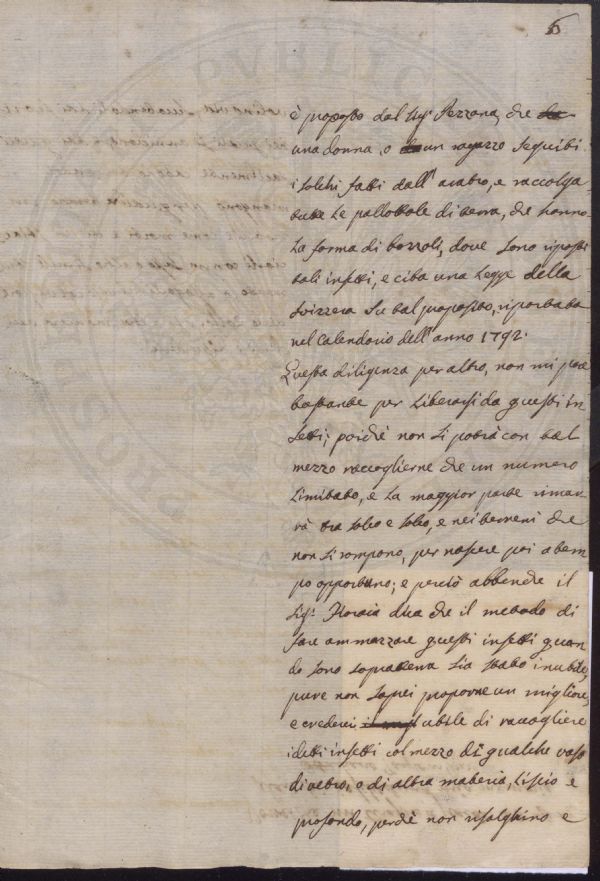 6
è proposto dal Sig.r Pezzana, che
una donna, o un ragazzo seguiti
i solchi fatti dall'aratro, e raccolga
tutte le pallottole di terra, che hanno
la forma di bozzoli, dove sono riposti
tali insetti, e cita una Legge della
Svizzera su tal proposito, riportata
nel Calendario dell'anno 1792.
Questa diligenza per altro, non mi pare
bastante per liberarsi da questi in
setti; poichè non si potrà con tal
mezzo raccoglierne che un numero
limitato, e la maggior parte rimar
rà tra solco e solco, e nei terreni che
non si rompono, per nascere poi a tem
po opportuno; e perciò abbenche il
Sig.r dica che il metodo di
fare ammazzare questi insetti quan
do sono sopraterra sia stato inutile,
pure non saprei proporne un migliore,
e crederei utile di raccogliere
i detti insetti col mezzo di qualche vaso
di vetro, o di altra materia, liscio e
profondo, perchè non risalghino e
PVBLIC